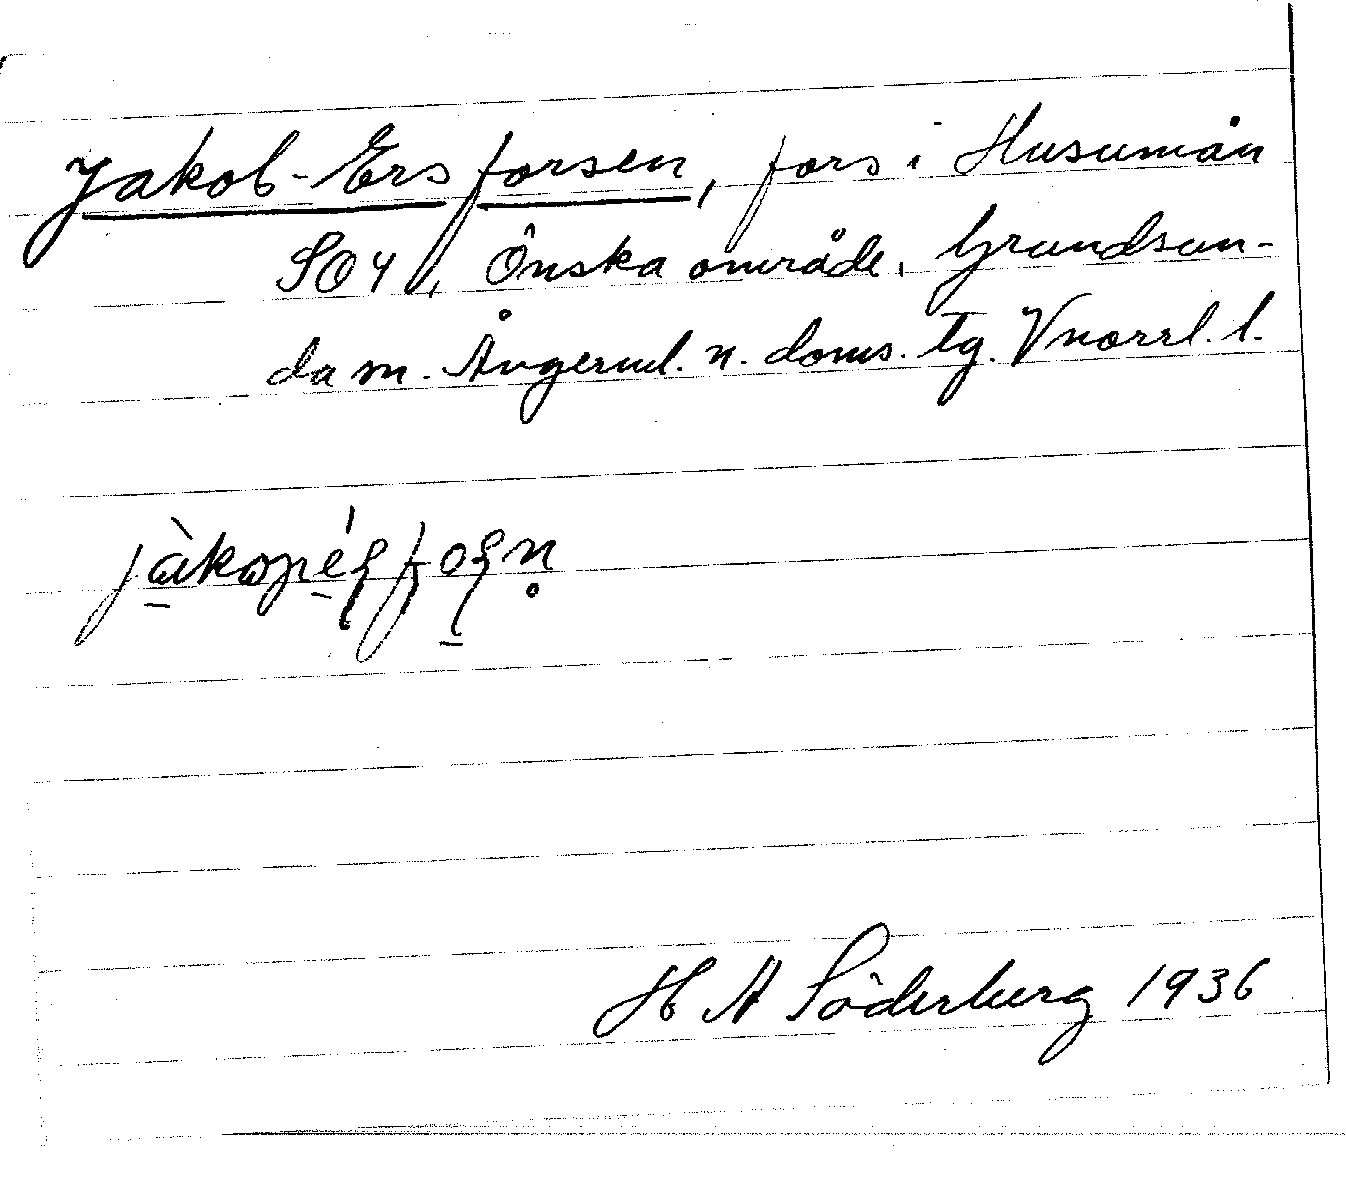 Jakob-Ersforsen, fors i Husumån
SO4, Önska område, Grundsun-
da sn. Ångerml. n. doms. tg. Vnorrl. l.
H A Söderberg 1936